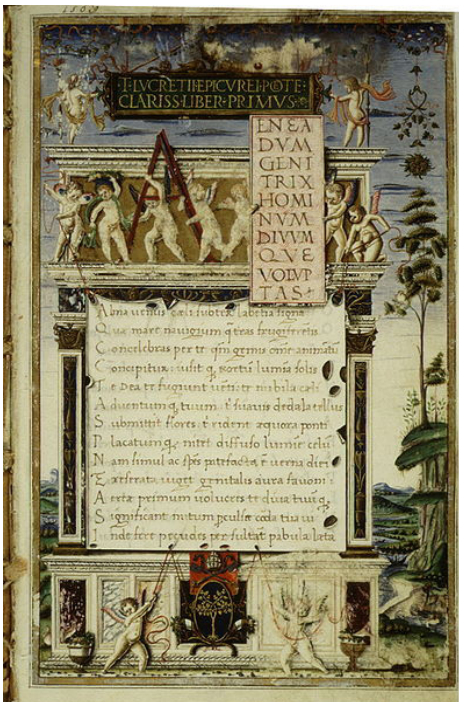 T·LVCRETII·EPICVREI·POTE·
CLARISS·LIBER·PRIMVS·
A
ENEA
DVM
GENI
TRIX
HOMI
NVM
DIVVM
QVE
VOLVP
TAS
Alma venus cæli subter labetia signa
Qua mare navigerum
Concelebras per te omne animatu
Concipitur lumia solis
Te Dea te fugiunt venti te nubila cæli
Aduentumq tuum t suauis dedala tellus
Submittit flores t rident æquora ponti
Placatumq nitet diffuso lumine celu
Nam simul ac spes patefacta verna diei
Et reserata uiget genitalis aura fauoni
Aeriæ primum volucres te diua tuuq
Significant initum tua ui
Inde fere pecudes per sultat pabula læta